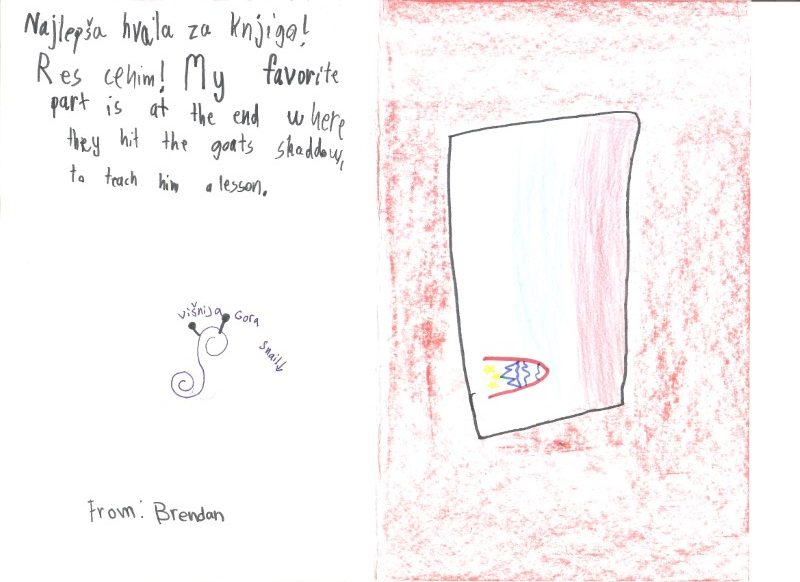 Najlepša hvala za knjiga!
Res cenim! My favorite
part is at the end where
they hit the goats shaddow,
to teach him a lesson.
višnija Gora
snail
From: Brendan